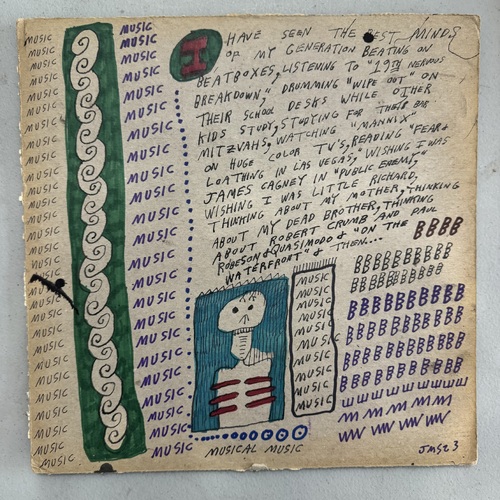 I HAVE SEEN THE BEST MINDS
OF MY GENERATION BEATING ON
BEATBOXES, LISTENING TO "19TH NERVOUS
BREAKDOWN," DRUMMING "WIPE OUT" ON
THEIR SCHOOL DESKS WHILE OTHER
KIDS STUDY, STUDYING FOR THEIR BAR
MITZVAHS, WATCHING "MANNIX"
ON HUGE COLOR TV'S, READING "FEAR &
LOATHING IN LAS VEGAS," WISHING I WAS
JAMES CAGNEY IN "PUBLIC ENEMY,"
WISHING I WAS LITTLE RICHARD,
THINKING ABOUT MY MOTHER, THINKING
ABOUT MY DEAD BROTHER, THINKING
ABOUT ROBERT CRUMB AND PAUL
ROBESON & QUASIMODO & "ON THE
WATERFRONT" & THEN...
BBBB
BBBBBBBBBB
BBBBBBBBBB
BBBBBBBBBB
BBBBBBBBBB
BBBBBBBBBB
BBBBBBBBBB
MUSIC
MUSIC
MUSIC
MUSIC
MUSIC
MUSIC
MUSIC
MUSIC
MUSIC
MUSIC
MUSIC
MUSIC
MUSIC
MUSIC
MUSIC
MUSIC
MUSIC
MUSIC
MUSIC
MUSIC
MUSIC
MUSIC
MUSIC
MUSIC
MUSIC
MUSIC
MUSIC
MUSIC
MUSIC
MUSIC
MUSIC
MUSIC
MUSIC
MUSIC
MUSIC
MUSIC
MUSIC
MUSIC
MUSIC
MUSIC
MUSIC
MUSIC
MUSIC
MUSIC
MUSIC
MUSIC
MUSIC
MUSIC
MUSIC
MUSIC
MUSIC
MUSIC
MUSIC
MUSIC
MUSIC
MUSIC
MUSIC
MUSIC
MUSIC
MUSIC
MUSIC
MUSIC
MUSIC
MUSIC
MUSICAL MUSIC
JMS23